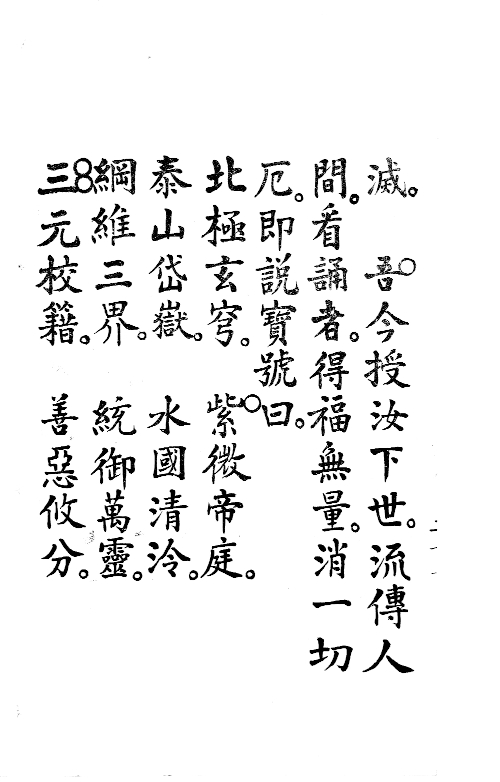 滅。　吾今授汝下世。流傳人
間。看誦者。得福無量。消一切
厄。即説寶號曰。
北極玄穹。　紫微帝庭。
泰山岱嶽。　水國清泠。
綱維三界。　統御萬靈。
三元校籍。　善惡攸分。